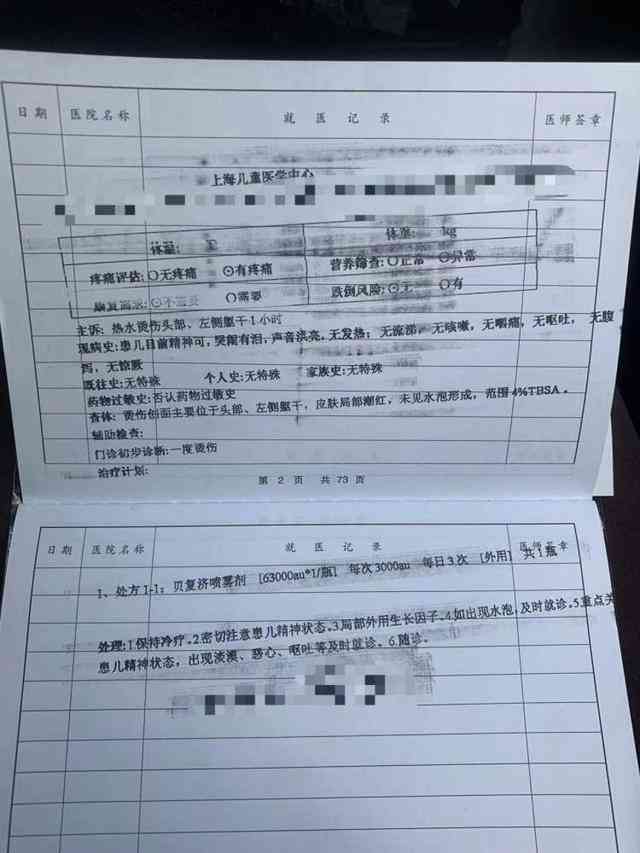 日期 医院名称 就医记录 医师签章
上海儿童医学中心
体温: 体重: kg
疼痛评估:○无疼痛 ⊙有疼痛 营养筛查:○正常 ⊙异常
康复需求:⊙不需要 ○需要 跌倒风险:⊙无 ○有
主诉: 热水烫伤头部、左侧躯干1小时
现病史:患儿目前精神可,哭闹有泪,声音洪亮,无发热; 无流涕, 无咳嗽, 无咽痛, 无呕吐, 无腹
泻, 无惊厥
既往史:无特殊 个人史:无特殊 家族史:无特殊
药物过敏史:否认药物过敏史
查体: 烫伤创面主要位于头部、左侧躯干, 皮肤局部潮红, 未见水泡形成, 范围4%TBSA。
辅助检查:
门诊初步诊断:一度烫伤
治疗计划:
第 2 页 共 73 页
日期 医院名称 就医记录 医师签章
1、处方1-1: 贝复济喷雾剂 [63000au*1/瓶] 每次3000au 每日3次 [外用] 共1瓶
处理:1.保持冷疗。2.密切注意患儿精神状态。3.局部外用生长因子。4.如出现水泡,及时就诊。5.重点关
患儿精神状态, 出现淡漠、恶心、呕吐等及时就诊。6.随诊。